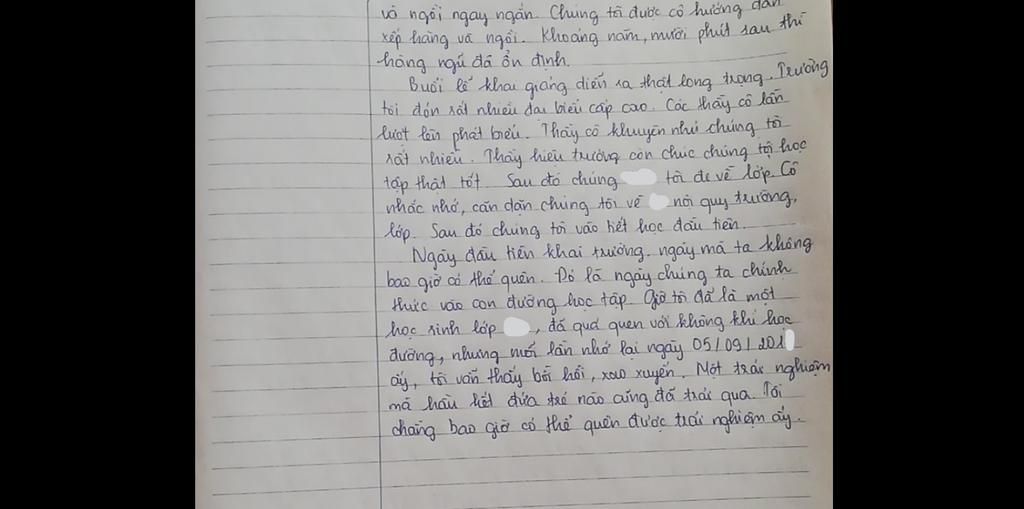 và ngồi ngay ngắn. Chúng tôi được cô hướng dẫn
xếp hàng và ngồi. Khoảng năm, mười phút sau thì
hàng ngũ đã ổn định.
Buổi lễ khai giảng diễn ra thật long trọng. Trường
tôi đón rất nhiều đại biểu cấp cao. Các thầy cô lần
lượt lên phát biểu. Thầy cô khuyên nhủ chúng tôi
rất nhiều. Thầy hiệu trưởng còn chúc chúng tôi học
tập thật tốt. Sau đó chúng tôi đi về lớp. Cô
nhắc nhở, căn dặn chúng tôi về nội quy trường,
lớp. Sau đó chúng tôi vào tiết học đầu tiên.
Ngày đầu tiên khai trường, ngày mà ta không
bao giờ có thể quên. Đó là ngày chúng ta chính
thức vào con đường học tập. Giờ tôi đã là một
học sinh lớp , đã quá quen với không khí học
đường, nhưng mỗi lần nhớ lại ngày 05/09/201
ấy, tôi vẫn thấy bồi hồi, xao xuyến. Một trải nghiệm
mà hầu hết đứa trẻ nào cũng đã trải qua. Tôi
chẳng bao giờ có thể quên được trải nghiệm ấy.